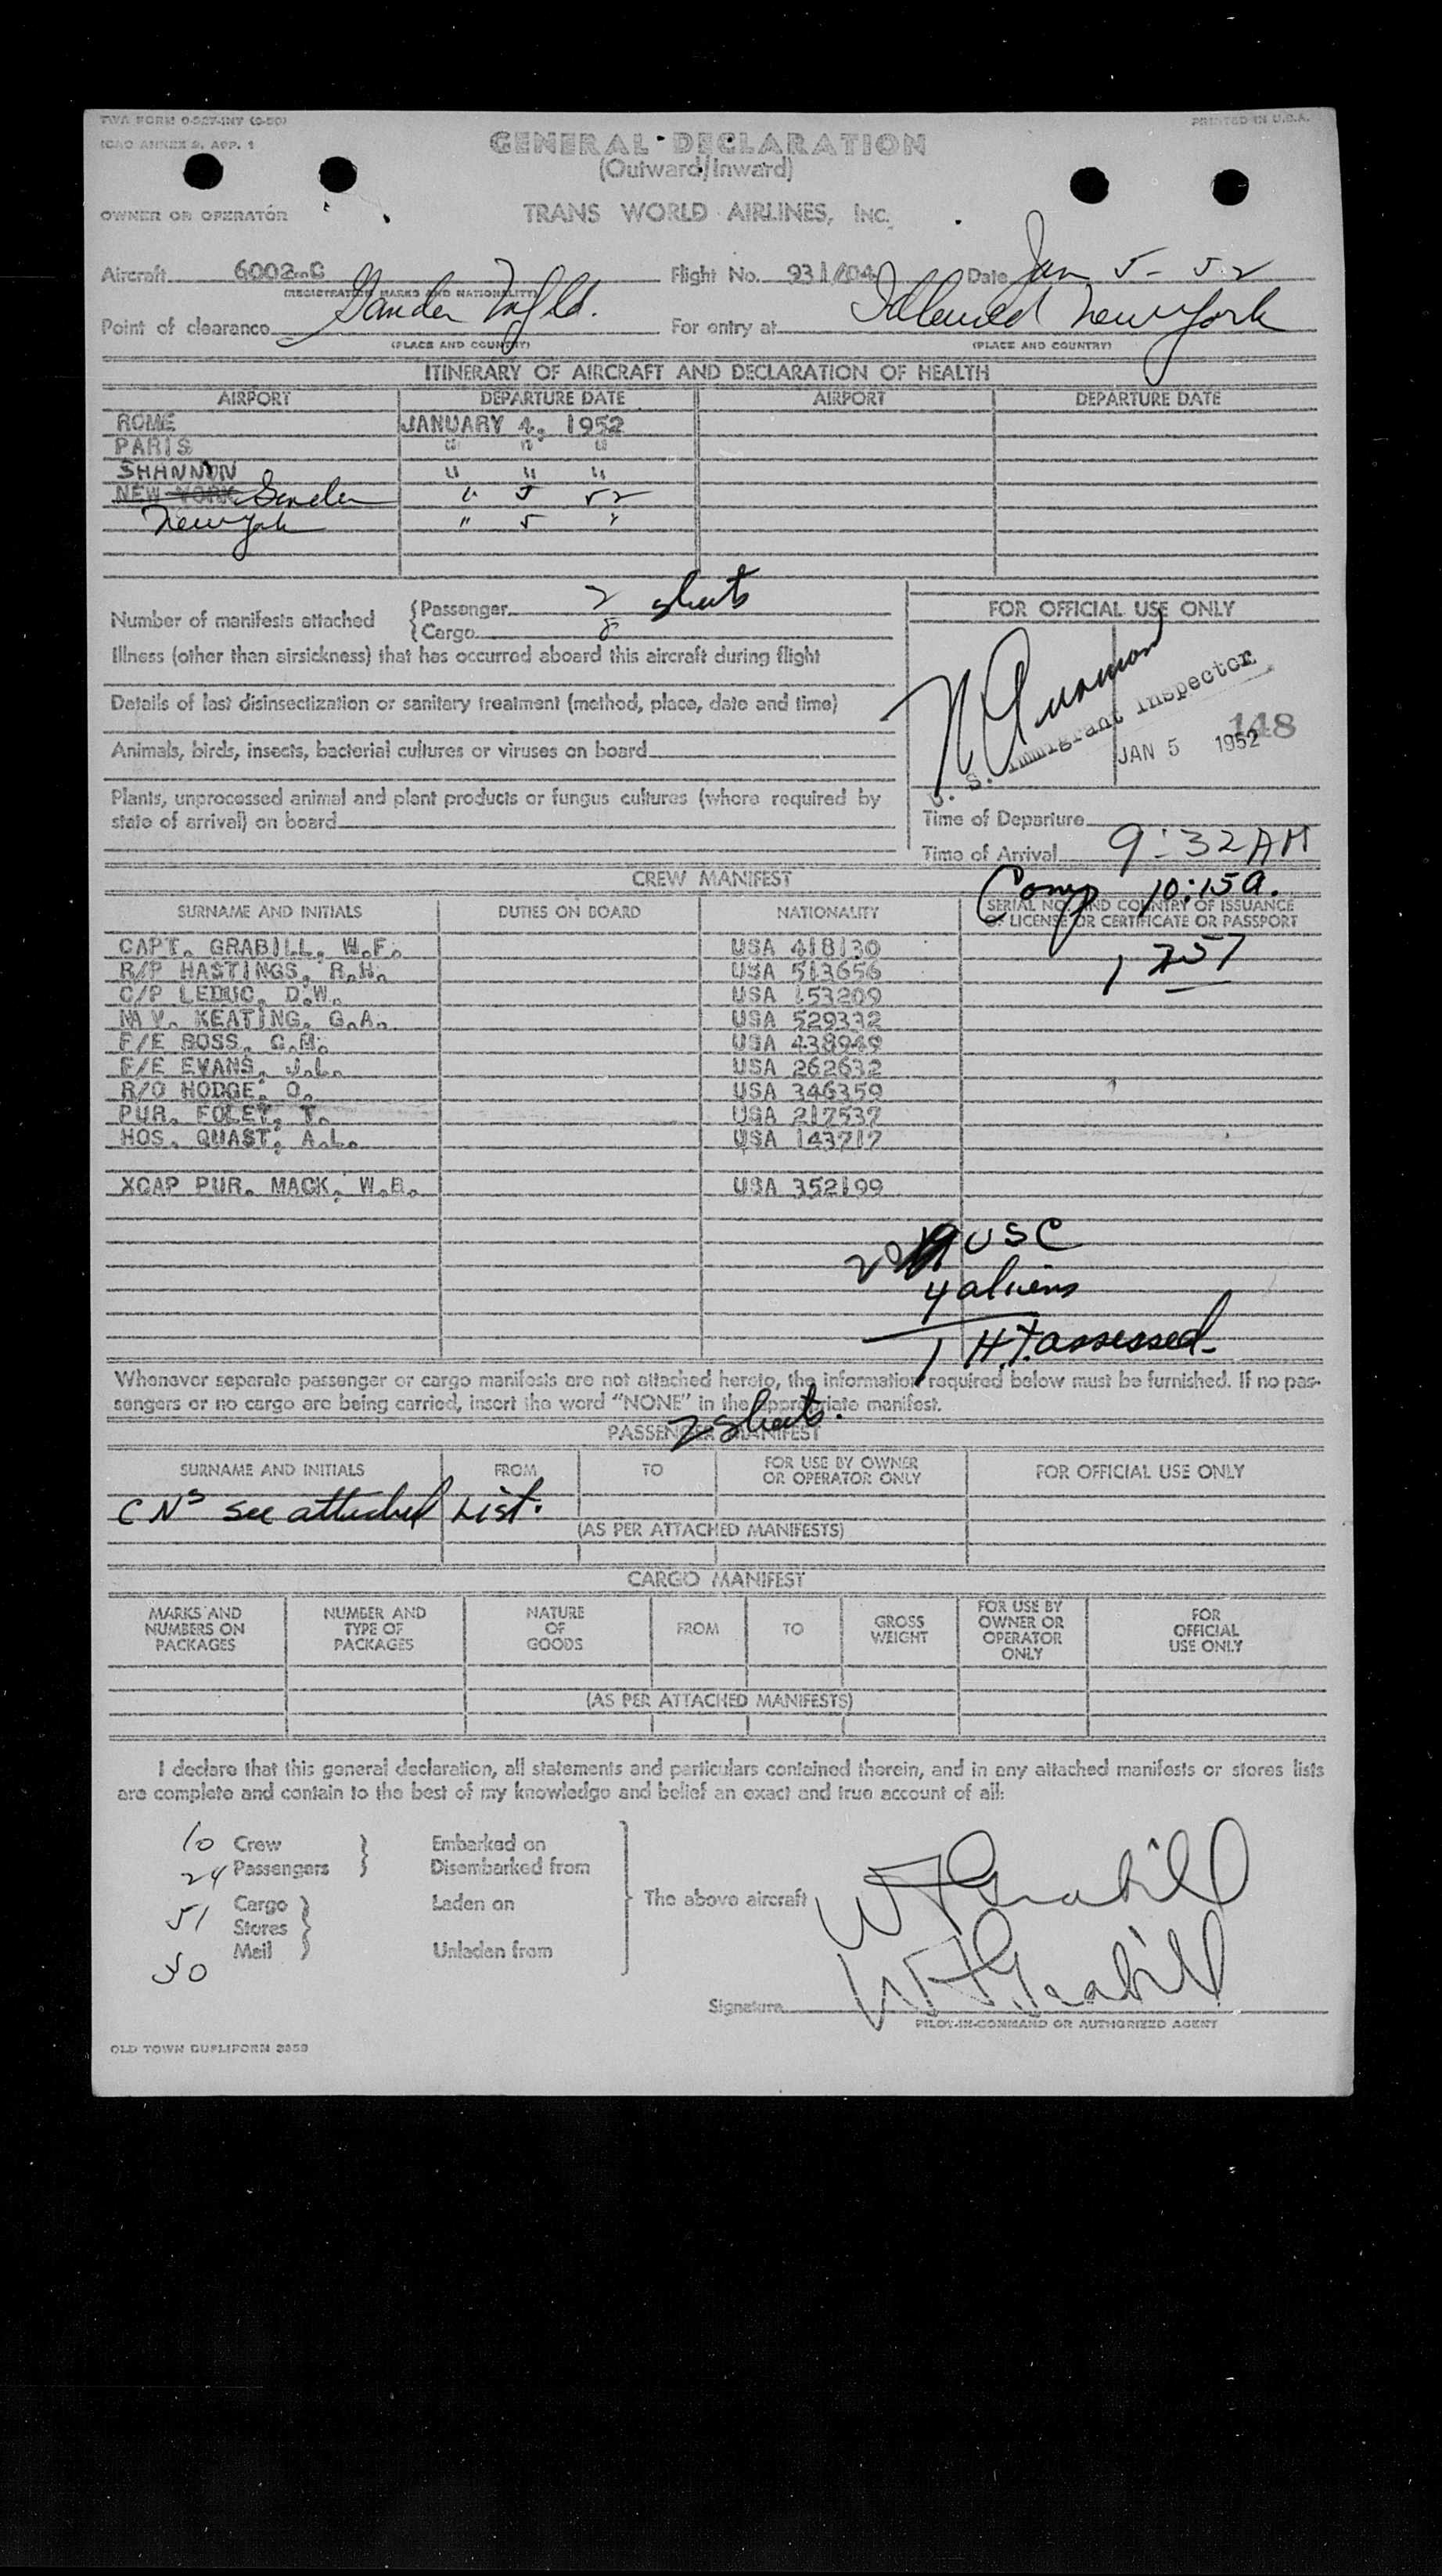 TWA FORM O-527-INT (9-50)
PRINTED IN U.S.A.
ICAO ANNEX 9, APP. 1
GENERAL DECLARATION
(Outward/Inward)
OWNER OR OPERATOR
TRANS WORLD AIRLINES, INC.
Aircraft 6002-C Flight No. 931/04 Date Jan 5-52
(REGISTRATION MARKS AND NATIONALITY)
Point of clearance Gander Nfld. For entry at Idlewild New York
(PLACE AND COUNTRY) (PLACE AND COUNTRY)
ITINERARY OF AIRCRAFT AND DECLARATION OF HEALTH
AIRPORT DEPARTURE DATE AIRPORT DEPARTURE DATE
ROME JANUARY 4, 1952
PARIS " " "
SHANNON " " "
NEW YORK Gander " 5 52
New York " 5 "
Number of manifests attached
Passenger 2 sheets
Cargo
Illness (other than airsickness) that has occurred aboard this aircraft during flight
Details of last disinsectization or sanitary treatment (method, place, date and time)
Animals, birds, insects, bacterial cultures or viruses on board
Plants, unprocessed animal and plant products or fungus cultures (where required by
state of arrival) on board
FOR OFFICIAL USE ONLY
U. S. Immigrant Inspector
148
JAN 5 1952
Time of Departure
Time of Arrival 9:32 AM
Comp 10:15a.
CREW MANIFEST
SURNAME AND INITIALS DUTIES ON BOARD NATIONALITY SERIAL NO. AND COUNTRY OF ISSUANCE
OF LICENSE OR CERTIFICATE OR PASSPORT
CAPT. GRABILL, W.F. USA 418130
R/P HASTINGS, R.H. USA 513656
C/P LEDUC, D.W. USA 153209
NAV. KEATING, G.A. USA 529332
F/E BOSS, G.M. USA 438949
F/E EVANS, J.L. USA 262632
R/O HODGE, O. USA 346359
PUR. FOLEY, T. USA 217537
HOS. QUAST, A.L. USA 143717
XCAP PUR. MACK, W.B. USA 352199
20 USC
4 aliens
1 H.T. assessed
Whenever separate passenger or cargo manifests are not attached hereto, the information required below must be furnished. If no pas-
sengers or no cargo are being carried, insert the word "NONE" in the appropriate manifest.
2 sheets.
PASSENGER MANIFEST
SURNAME AND INITIALS FROM TO FOR USE BY OWNER
OR OPERATOR ONLY FOR OFFICIAL USE ONLY
CNs see attached List.
(AS PER ATTACHED MANIFESTS)
CARGO MANIFEST
MARKS AND
NUMBERS ON
PACKAGES
NUMBER AND
TYPE OF
PACKAGES
NATURE
OF
GOODS
FROM
TO
GROSS
WEIGHT
FOR USE BY
OWNER OR
OPERATOR
ONLY
FOR
OFFICIAL
USE ONLY
(AS PER ATTACHED MANIFESTS)
I declare that this general declaration, all statements and particulars contained therein, and in any attached manifests or stores lists
are complete and contain to the best of my knowledge and belief an exact and true account of all:
10 Crew Embarked on
24 Passengers Disembarked from
51 Cargo Laden on
Stores
Mail Unladen from
30
The above aircraft
WF Grabill
WF Grabill
Signature
PILOT-IN-COMMAND OR AUTHORIZED AGENT
OLD TOWN DUPLIFORM 3859